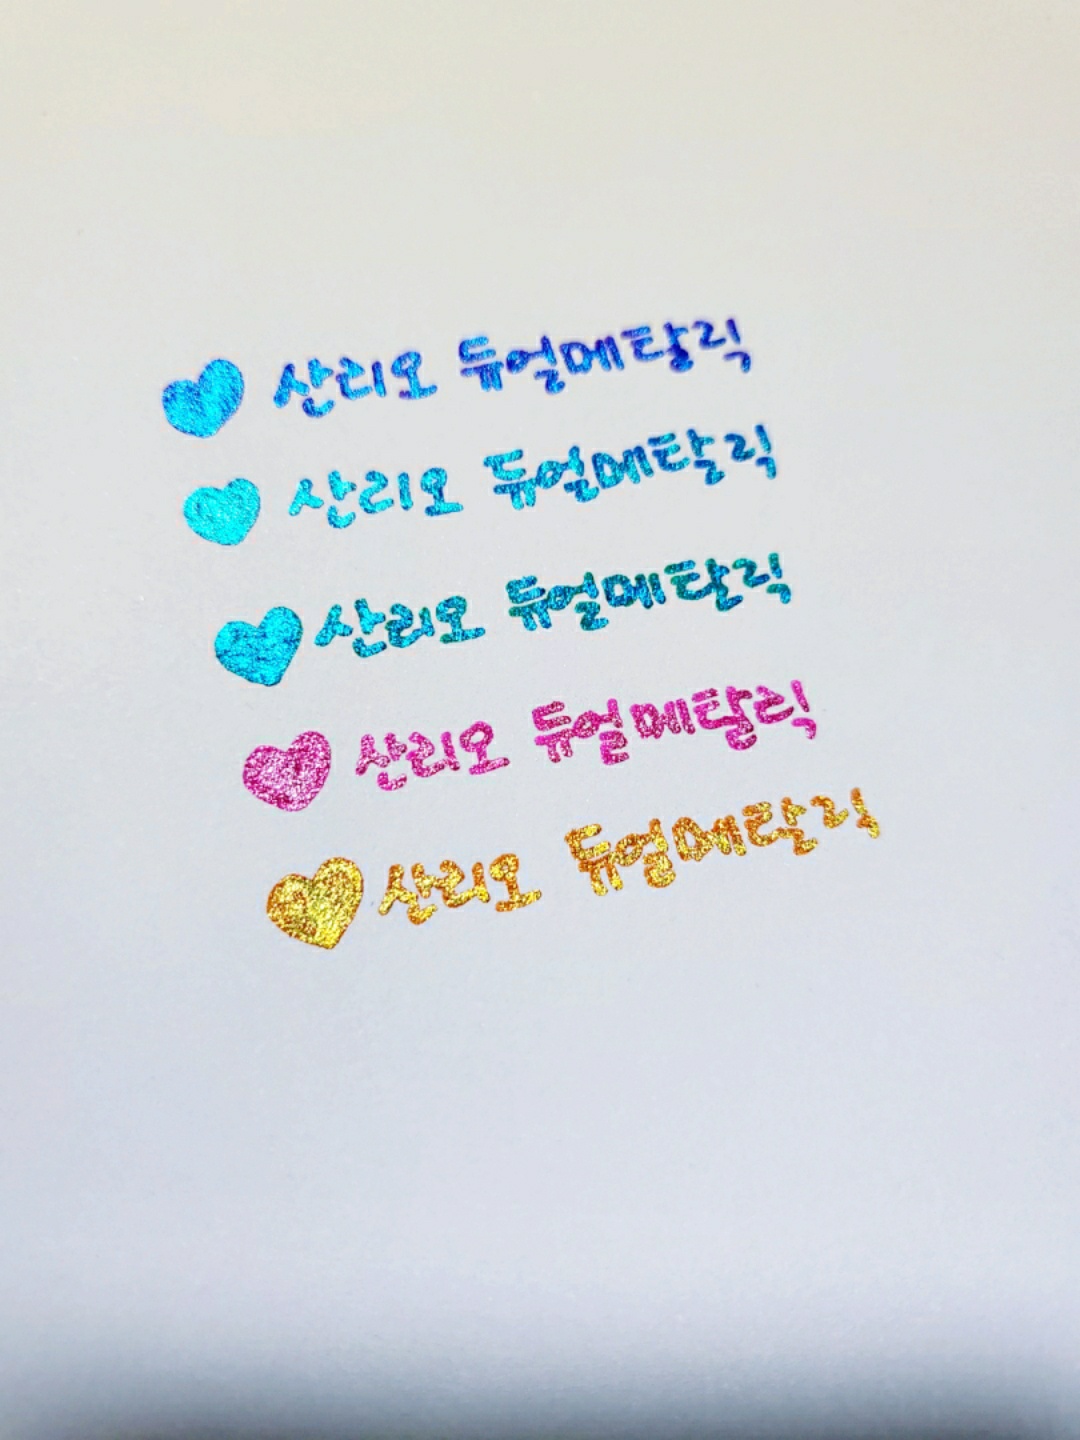 산리오 듀얼메탈릭
산리오 듀얼메탈릭
산리오 듀얼메탈릭
산리오 듀얼메탈릭
산리오 듀얼메탈릭